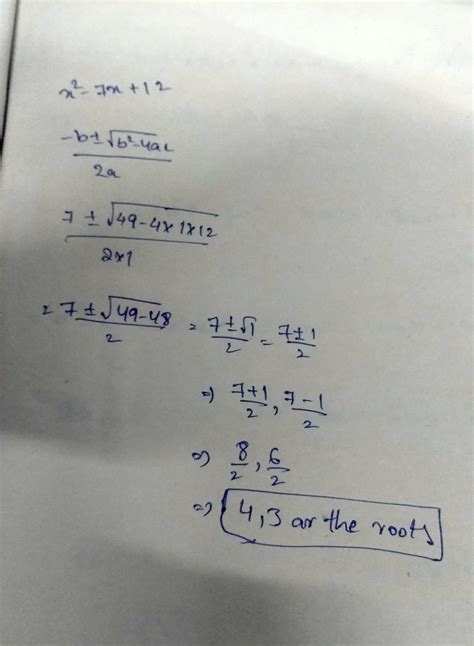 x²-7x+12
-b±√b²-4ac / 2a
7 ± √49-4×1×12 / 2×1
= 7±√49-48 / 2 = 7±√1 / 2 = 7±1 / 2
⇒ 7+1 / 2 , 7-1 / 2
⇒ 8/2 , 6/2
⇒ 4,3 ar the roots